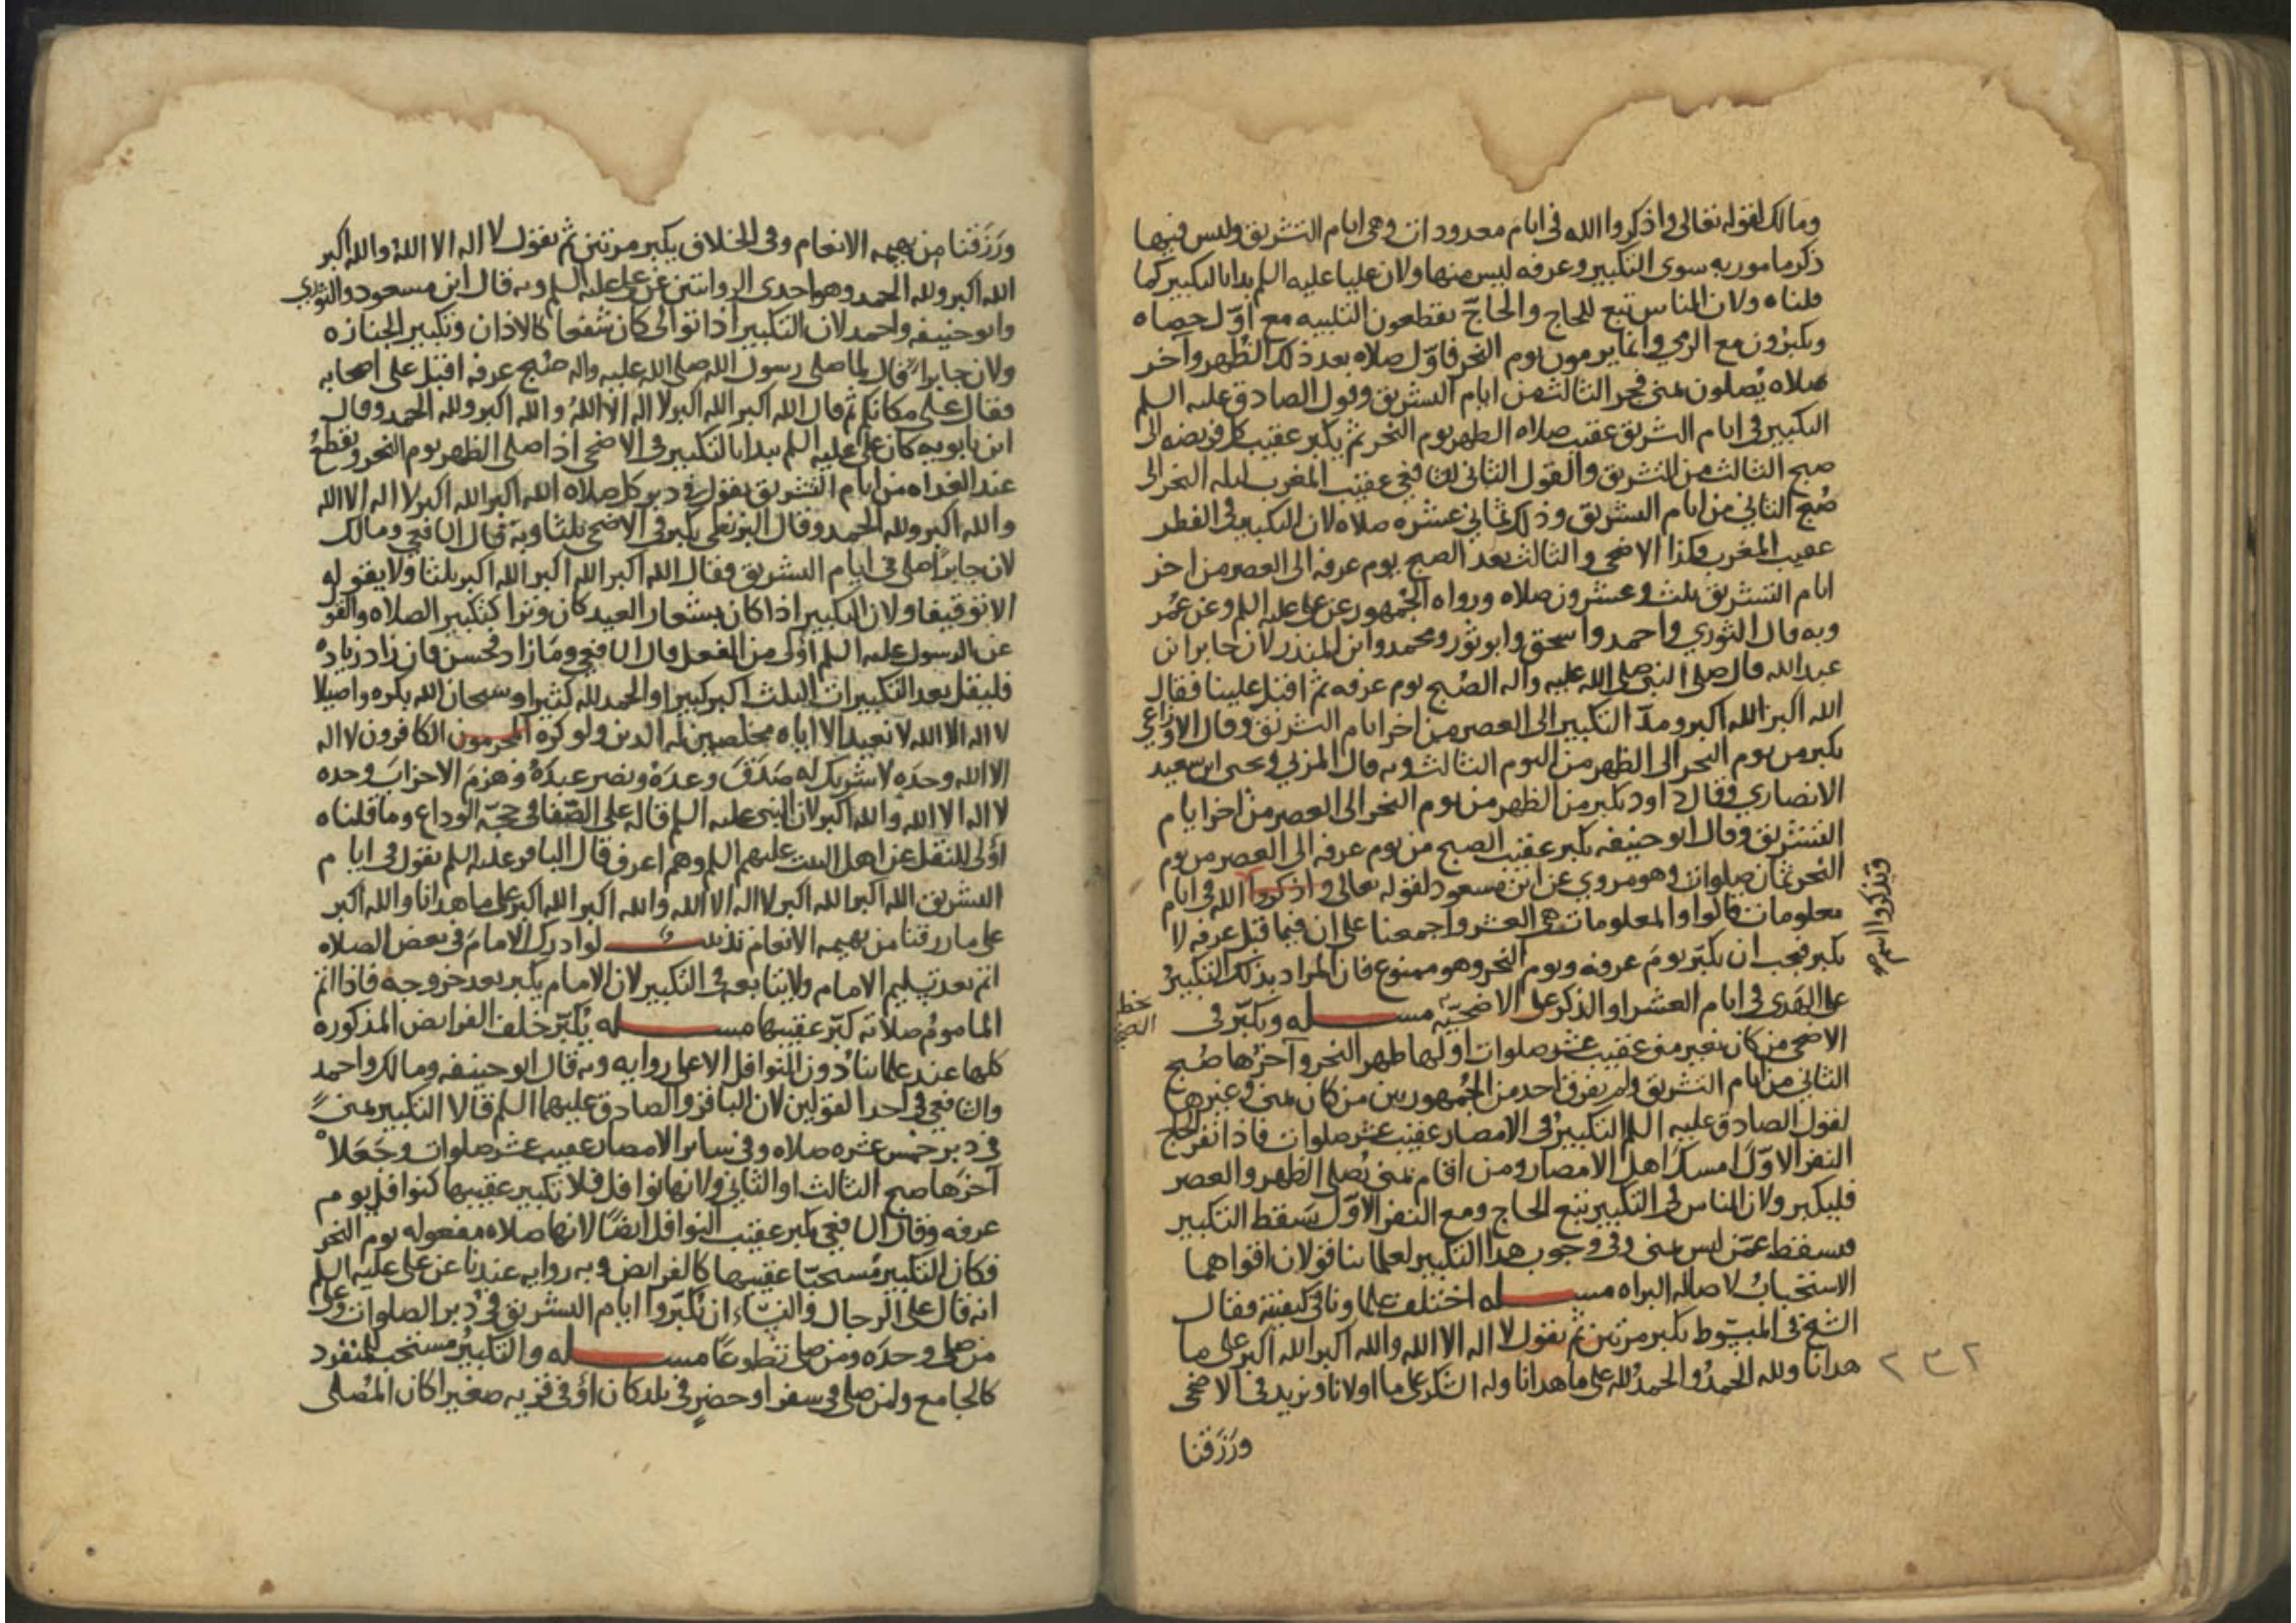 ومالك لقوله تعالى واذكروا الله في ايام معدودات وهى ايام التشريق وليس فيها
ذكر مامور به سوى التكبير وعرفه ليس منها ولان عليا عليه السلم بدا بالتكبير كما
قلناه ولان الناس تبع للحاج والحاجّ يقطعون التلبيه مع اوّل حصاه
ويكبرون مع الرمي وانما يرمون يوم النحر فاوّل صلاه بعد ذلك الظهر وآخر
صلاه يُصلون بمنى فجر الثالث من ايام التشريق وقول الصادق عليه السلم
التكبير في ايام التشريق عقيب صلاه الظهر يوم النحر ثم يكبر عقيب كل فريضه الى
صبح الثالث من التشريق والقول الثاني للشافعي عقيب المغرب ليله النحر الى
صُبح الثاني من ايام التشريق وذلك ثماني عشره صلاه لان التكبير في الفطر
عقيب المغرب فكذا الاضحى والثالث بعد الصبح يوم عرفه الى العصر من اخر
ايام التشريق ثلث وعشرون صلاه ورواه الجمهور عن على عليه السلم وعن عُمر
وبه قال الثوري واحمد واسحق وابو ثور ومحمد وابن المنذر لان جابر ابن
عبد الله قال صلى النبى صلى الله عليه واله الصُبح يوم عرفه ثم اقبل علينا فقال
الله اكبر الله اكبر ومدّ التكبير الى العصر من اخر ايام التشريق وقال الاوزاعي
يكبر من يوم النحر الى الظهر من اليوم الثالث وبه قال المزني ويحيى ابن سعيد
الانصاري وقال داود يكبر من الظهر من يوم النحر الى العصر من اخر ايام
التشريق وقال ابو حنيفه يكبر عقيب الصبح من يوم عرفه الى العصر من يوم
النحر ثمان صلوات وهو مروي عن ابن مسعود لقوله تعالى واذكروا الله في ايام
معلومات قالوا والمعلومات هي العشر واجمعنا على ان فيما قبل عرفه لا
يكبر فيجب ان يكبّر يومَ عرفه ويوم النحر وهو ممنوع فان المراد بذلك التكبيرُ
على الهَدى في ايام العشر او الذكر على الاضحيّه مســله ويكبّر في
الاضحى من كان بغير منى عقيب عشر صلوات اولها ظهر النحر وآخرُها صُبح
الثاني من ايام التشريق ولم يفرق احد من الجُمهور بين من كان بمنى وغيرها
لقول الصادق عليه السلم التكبيرُ في الامصار عقيب عشر صلوات فاذا نفر الحاج
النفر الاوّل امسك اهل الامصار ومن اقام بمنى يُصلي الظهر والعصر
فليكبر ولان الناس في التكبير تبع الحاج ومع النفر الاوّل سقط التكبير
فيسقط عمّن ليس بمنى وفى وجوب هذا التكبير لعلمائنا قولان اقواهما
الاستحبابُ لاصاله البراه مســله اختلف علماؤنا في كيفيته فقال
الشيخ في المبسُوط يكبر مرتين ثم يقول لا اله الا الله والله اكبر الله اكبر على ما
هدانا ولله الحمدُ والحمدُ لله على ما هدانا وله الشكر على ما اولانا ويزيد في الاضحى
ورَزَقنا
ويذكروا اسم
٢٣٢
ورَزَقنا من بهيمه الانعام وفى الخلاف يكبر مرتين ثم يقول لا اله الا الله والله اكبر
الله اكبر ولله الحمد وهو احدى الروايتين عن على عليه السلم وبه قال ابن مسعود والثوري
وابو حنيفه واحمد لان التكبير اذا توالى كان شفعا كالاذان وتكبير الجنازه
ولان جابرا قال لما صلى رسول الله صلى الله عليه واله صُبح عرفه اقبل على اصحابه
فقال على مكانكم ثم قال الله اكبر الله اكبر لا اله الا اللهُ والله اكبر ولله الحمد وقال
ابن بابويه كان على عليه السلم يبدا بالتكبير في الاضحى اذا صلى الظهر يوم النحر ويقطعُ
عند الغداه من ايام التشريق يقول في دبر كل صلاه الله اكبر الله اكبر لا اله الا الله
والله اكبر ولله الحمد وقال البزنطى يكبر في الاضحى ثلثا وبه قال الشافعي ومالك
لان جابراً صلى في ايام التشريق فقال الله اكبر الله اكبر الله اكبر ثلثا ولا يقوله
الا توقيفا ولان التكبير اذا كان بشعار العيد كان وترا كتكبير الصلاه والقو
عن الرسول عليه السلم اَوْلى من الفعل قال الشافعي وما زاد فحسن فان زاد زياده
فليقل بعد التكبيرات الثلث اكبر كبيرا والحمد لله كثيرا وسبحان الله بكره واصيلا
لا اله الا الله لا نعبد الا اياه مخلصين له الدين ولو كره المجرمون الكافرون لا اله
الا الله وحدَه لا شريك له صَدَقَ وعدَهُ ونصر عبدَهُ وهزم الاحزابَ وحده
لا اله الا الله والله اكبر لان النبى عليه السلم قاله على الصّفا في حجّه الوداع وما قلناه
اَوْلى للنقل عن اهل البيت عليهم السلم وهم اعرف قال الباقر عليه السلم يقول في ايام
التشريق الله اكبر الله اكبر لا اله الا الله والله اكبر الله اكبر على ما هدانا والله اكبر
على ما رزقنا من بهيمه الانعام تذنيب لو ادرك الامامَ في بعض الصلاه
اتم بعد تسليم الامام ولا يتابعه في التكبير لان الامام يكبر بعد خروجه فاذا اتم
الماموم صلاته كبّر عقيبها مســله يُكبّر خلف الفرايض المذكوره
كلها عند علمائنا دون النوافل الا على روايه وبه قال ابو حنيفه ومالك واحمد
والشافعي في احد القولين لان الباقر والصادق عليهما السلم قالا التكبير بمنىً
في دبر خمس عشره صلاه وفي ساير الامصار عقيب عشر صلوات وجَعَلا
آخرَها صبح الثالث او الثاني ولانها نوافل فلا تكبير عقيبها كنوافل يوم
عرفه وقال الشافعي يكبر عقيب النوافل ايضًا لانها صلاه مفعوله يوم النحر
فكان التكبير مُستحبّا عقيبها كالفرايض وبه روايه عندنا عن على عليه السلم
انه قال على الرجال والنساء ان يُكبّروا ايام التشريق في دُبر الصلوات وعلى
من صلى وحدَه ومن صلى تطوعًا مســله والتكبيرُ مستحب للمنفرد
كالجامع ولمن صلى في سفر او حضرٍ في بلد كان اَوْ في قريه صغيرا كان المُصلى